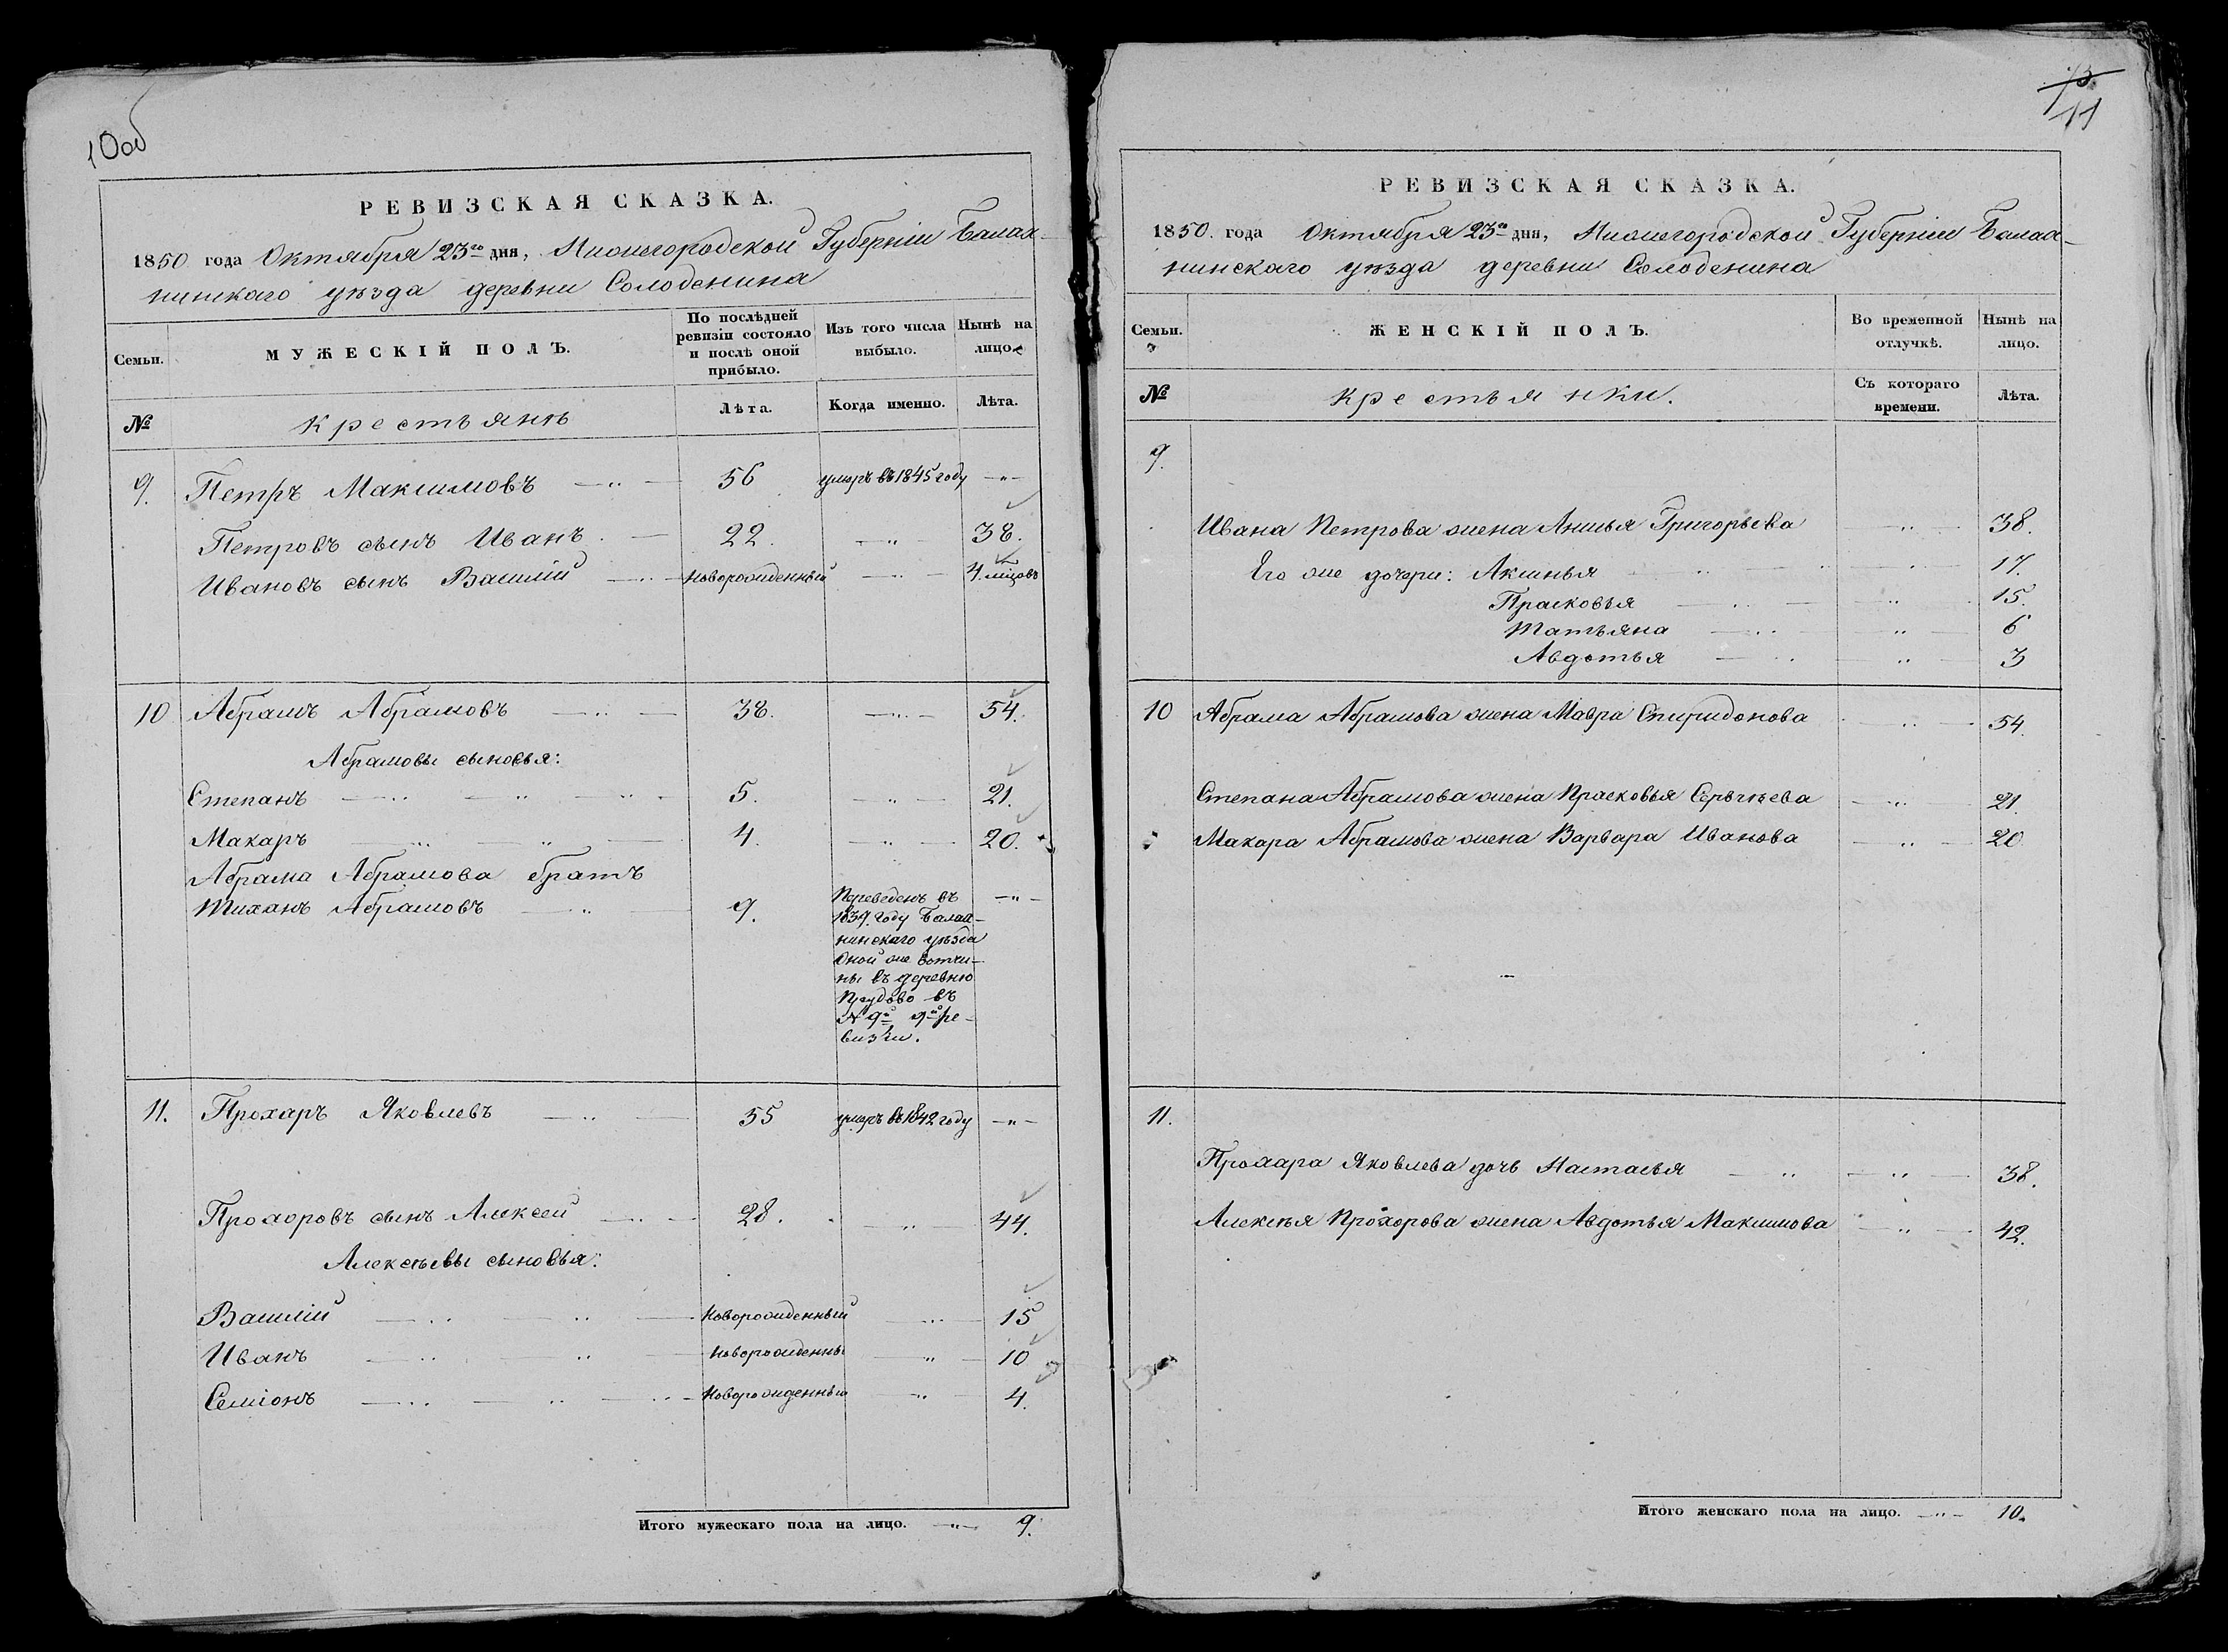 10об
РЕВИЗСКАЯ СКАЗКА.
1850 года Октября 23го дня, Нижегородской Губерніи Балах-
нинскаго уѣзда деревни Солоденина
Семьи.
МУЖЕСКІЙ ПОЛЪ.
По послѣдней ревизіи состояло и послѣ оной прибыло.
Изъ того числа выбыло.
Нынѣ на лицо.
№
Крестьянъ
Лѣта.
Когда именно.
Лѣта.
9. Петръ Максимовъ — „ — 56 умеръ въ 1845 году — „ —
Петровъ сынъ Иванъ — 22. — „ — 38.
Ивановъ сынъ Василій — „ — новорожденный — „ — 4. мцовъ
10 Абрамъ Абрамовъ — „ — 38. — „ — 54.
Абрамовы сыновья:
Степанъ — „ — „ — „ — 5. — „ — 21.
Макаръ — „ — „ — 4. — „ — 20.
Абрама Абрамова братъ
Тиханъ Абрамовъ — „ — 9. Переведенъ въ — „ —
1839. году Балах-
нинскаго уѣзда
оной же вотчи-
ны въ деревню
Прудово въ
№ 9й 9й ре-
визіи.
11. Прохаръ Яковлевъ — „ — 55 умеръ въ 1842 году — „ —
Прохоровъ сынъ Алексей — „ — 28. — „ — 44.
Алексѣевы сыновья:
Василій — „ — „ — новорожденный — „ — 15
Иванъ — „ — „ — новорожденны — „ — 10
Семіонъ — „ — „ — „ — новорожденный — „ — 4.
Итого мужескаго пола на лицо. — „ — 9.
11
РЕВИЗСКАЯ СКАЗКА.
1850. года Октября 23го дня, Нижегородской Губерніи Балах-
нинскаго уѣзда деревни Солоденина
Семьи.
ЖЕНСКІЙ ПОЛЪ.
Во временной отлучкѣ.
Нынѣ на лицо.
№
Крестьянки.
Съ котораго времени.
Лѣта.
9.
Ивана Петрова жена Анисья Григорьева — „ — 38.
Его же дочери: Аксинья — „ — 17.
Прасковья — „ — „ — 15.
Татьяна — „ — „ — 6
Авдотья — „ — „ — 3
10 Абрама Абрамова жена Мавра Спиридонова — „ — 54.
Степана Абрамова жена Прасковья Сергѣева — „ — 21.
Макара Абрамова жена Варвара Иванова — „ — 20
11.
Прохара Яковлева дочь Настасья — „ — „ — 38.
Алексѣя Прохорова жена Авдотья Максимова — „ — 42.
Итого женскаго пола на лицо. — „ — 10.